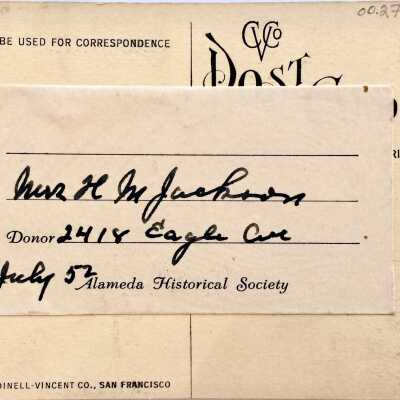 00.27
BE USED FOR CORRESPONDENCE
CVCo
POST
Mrs H M Jackson
Donor 2418 Eagle Ave
July 52 Alameda Historical Society
DINELL-VINCENT CO., SAN FRANCISCO